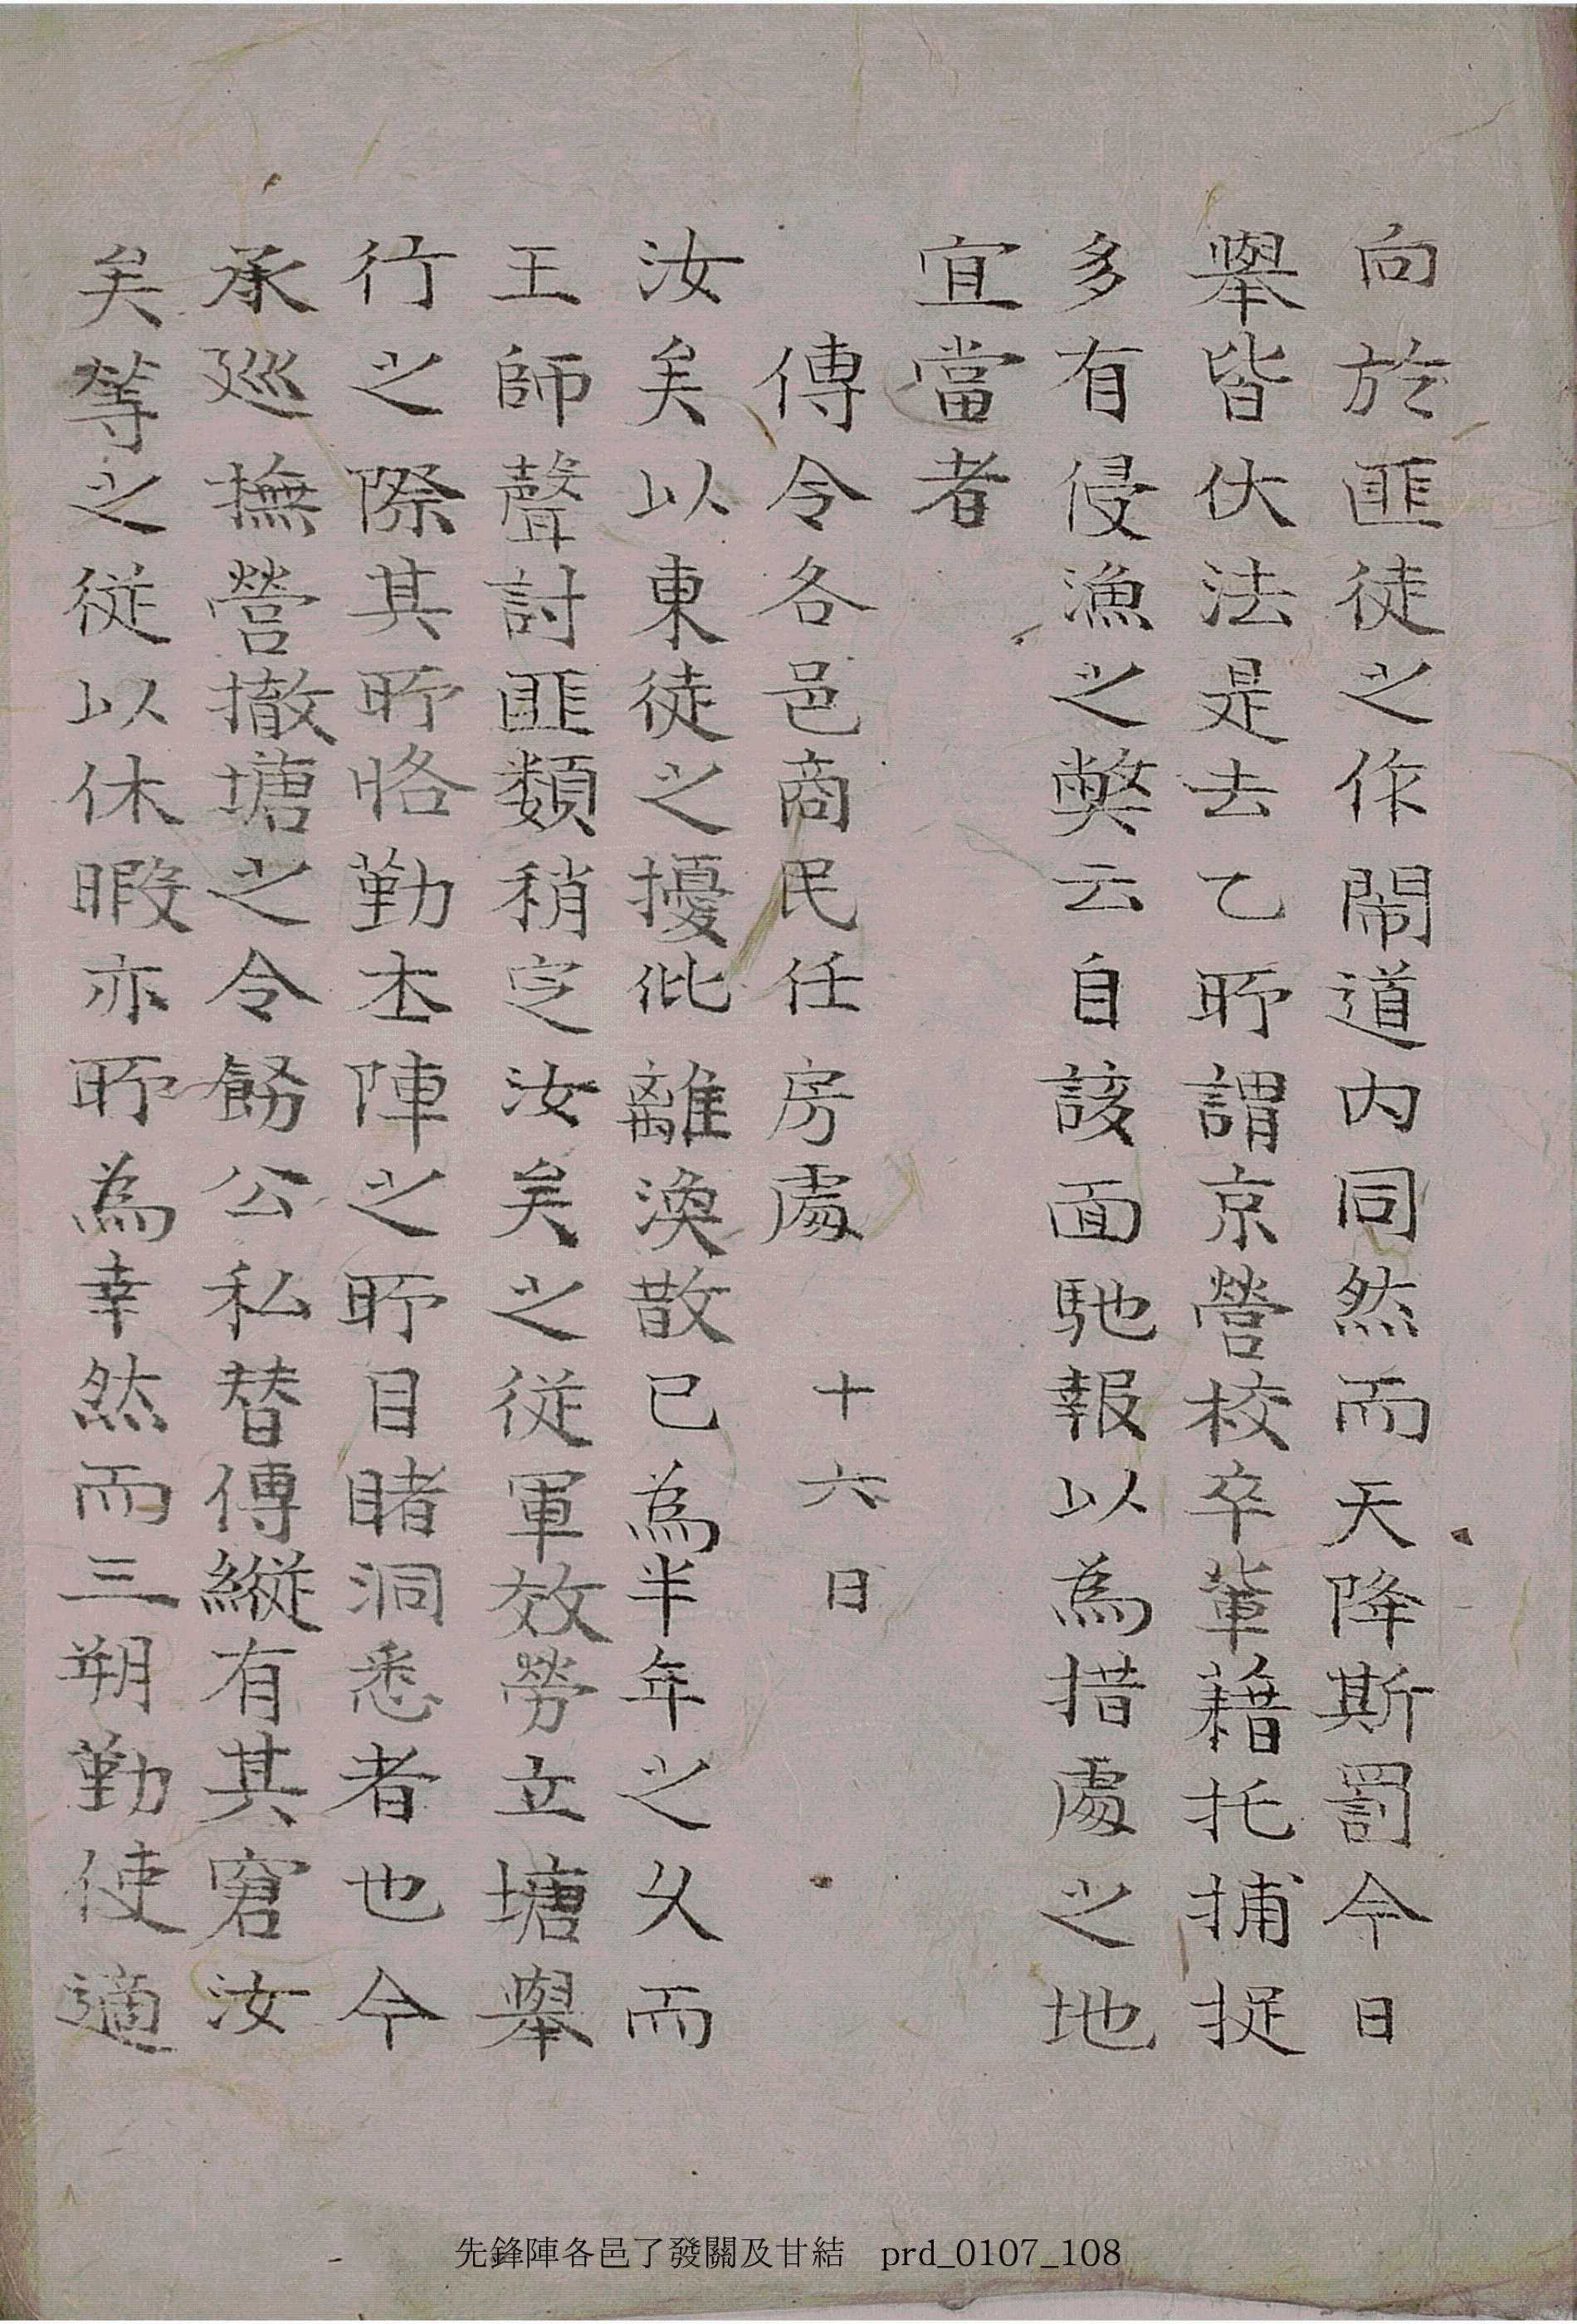 向於匪徒之作閙道内同然而天降斯罰今日
擧皆伏法是去乙所謂京營校卒軰藉托捕捉
多有侵漁之獘云自該面馳報以為措處之地
宜當者
傳令各邑商民任房處 十六日
汝矣以東徒之擾仳離渙散已為半年之久而
王師聲討匪類稍定汝矣之從軍效勞立塘擧
行之際其所恪勤本陣之所目睹洞悉者也今
承廵撫營撤塘之令飭公私替傳縱有其窘汝
矣等之從以休暇亦所為幸然而三朔勤使適
先鋒陣各邑了發關及甘結 prd_0107_108